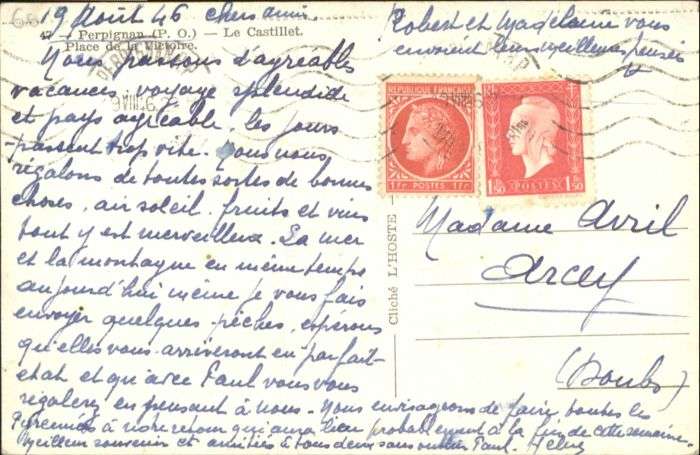 19 Août 46 chers amis.
47 - Perpignan (P. O.) - Le Castillet.
Place de la Victoire.
Nous passons d'agréables
vacances, voyage splendide
et pays agréable, les jours
passent trop vite. Nous nous
régalons de toutes sortes de bonnes
choses, air soleil, fruits et vins
tout y est merveilleux. La mer
et la montagne en même temps
aujourd'hui même je vous fais
envoyer quelques pêches, espérons
qu'elles vous arriveront en parfait-
etat et qu'avec Paul vous vous
régalerez en pensant à nous. Nous envisageons de faire toutes les
Pyrennées à notre retour qui aura lieu probablement à la fin de cette semaine.
Meilleur souvenir et amitiés à tous deux sans oublier Paul.
Robert et Madelaine vous
envoient leurs meilleures pensées
REPUBLIQUE FRANÇAISE
1 Fr. POSTES 1 Fr.
1f50 POSTES 1f50
Cliché L'HOSTE
Madame Avril
Arcey
(Doubs)